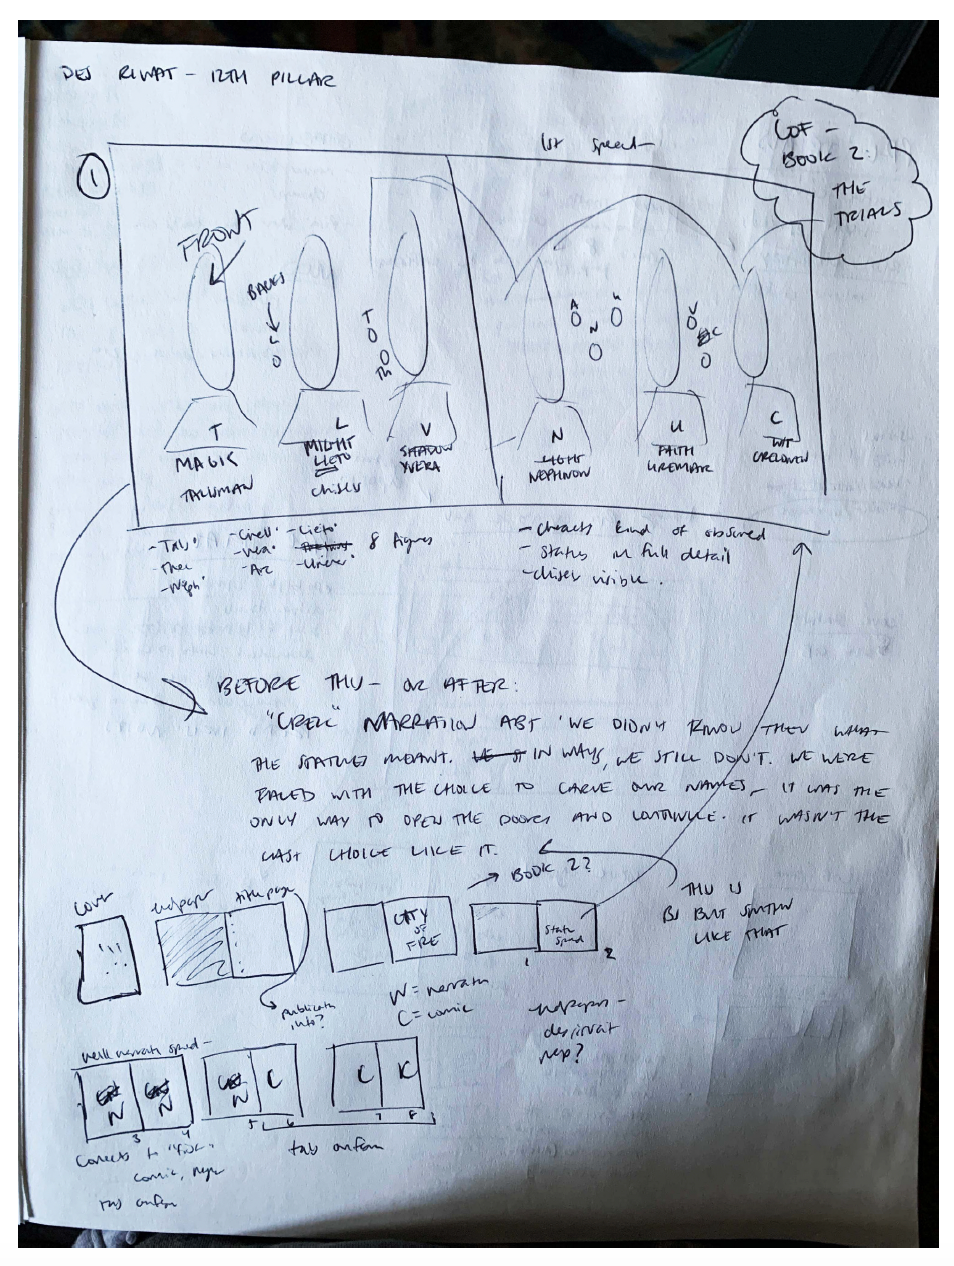 DEJ RIWAT - 12TH PILLAR
1
1st spread -
COF -
BOOK 2:
THE
TRIALS
FRONT
BACKS
L
T
TH
A
N
U
V
C
T
MAGIC
TALISMAN
L
MIGHT
LIETO
chisel
V
SHADOW
XVERA
N
LIGHT
NEPHNON
U
FAITH
UREMARK
C
WIT
- Tab
- Lieto
8 figures
- kind of obscured
- statues in full detail
- chisel visible.
BEFORE THU - OR AFTER:
"CREW" NARRATION ABT 'WE DIDN'T KNOW THEN WHAT
THE STATUES MEANT. IN WAYS, WE STILL DON'T. WE WERE
FACED WITH THE CHOICE TO CARVE OUR NAMES - IT WAS THE
ONLY WAY TO OPEN THE DOORS AND CONTINUE. IT WASN'T THE
LAST CHOICE LIKE IT.
→ BOOK 2?
THU IS
BS BUT SMTHN
LIKE THAT
cover
endpaper
title page
CITY
OF
FIRE
Statue
spread
1
2
publication
info?
N = narration
C = comic
endpapers -
dej riwat
map?
well narrate spread -
N
N
N
C
C
C
3
4
5
6
7
8
Connects to "first"
comic, maybe
tab confirm